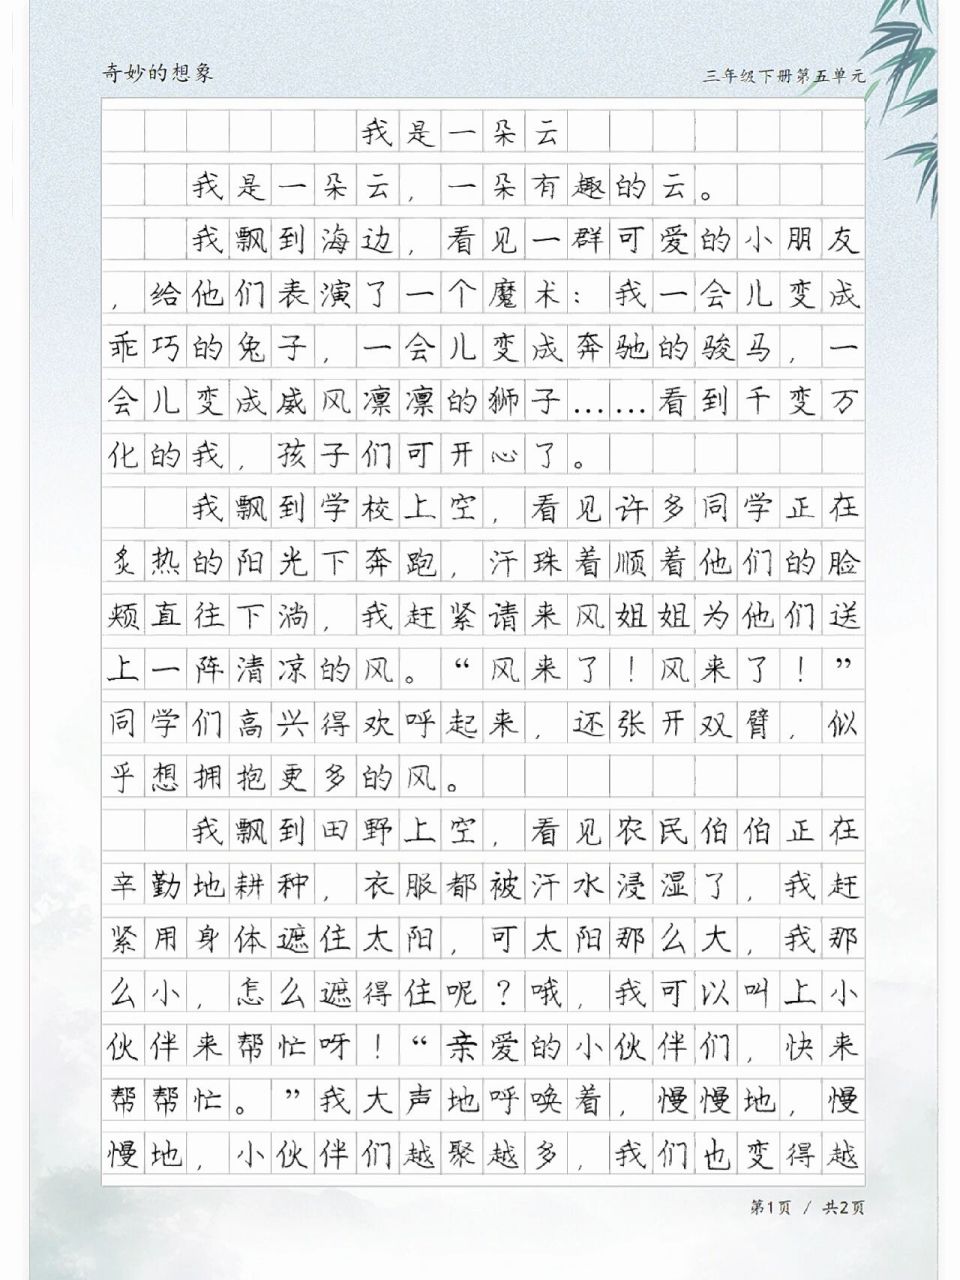 奇妙的想象
三年级下册第五单元
我是一朵云
我是一朵云，一朵有趣的云。
我飘到海边，看见一群可爱的小朋友
，给他们表演了一个魔术：我一会儿变成
乖巧的兔子，一会儿变成奔驰的骏马，一
会儿变成威风凛凛的狮子……看到千变万
化的我，孩子们可开心了。
我飘到学校上空，看见许多同学正在
炙热的阳光下奔跑，汗珠着顺着他们的脸
颊直往下淌，我赶紧请来风姐姐为他们送
上一阵清凉的风。“风来了！风来了！”
同学们高兴得欢呼起来，还张开双臂，似
乎想拥抱更多的风。
我飘到田野上空，看见农民伯伯正在
辛勤地耕种，衣服都被汗水浸湿了，我赶
紧用身体遮住太阳，可太阳那么大，我那
么小，怎么遮得住呢？哦，我可以叫上小
伙伴来帮忙呀！“亲爱的小伙伴们，快来
帮帮忙。”我大声地呼唤着，慢慢地，慢
慢地，小伙伴们越聚越多，我们也变得越
第1页 / 共2页